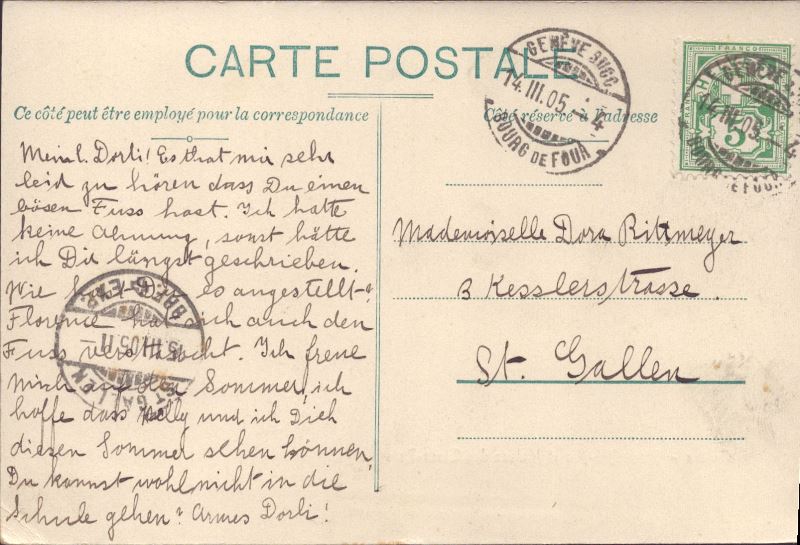 CARTE POSTALE
Ce côté peut être employé pour la correspondance
Côté réservé à l'adresse
GENÈVE BOURG DE FOUR
14.III.05.-4
FRANCO
5
14.III.05.-4
Mein l. Dorli! Es that mir sehr
leid zu hören dass Du einen
bösen Fuss hast. Ich hatte
keine Ahnung, sonst hätte
ich Dir längst geschrieben.
Wie hast Du es angestellt?
Florence hat sich auch den
Fuss verstaucht. Ich freue
mich auf den Sommer, ich
hoffe dass Nelly und ich Dich
diesen Sommer sehen können,
Du kannst wohl nicht in die
Schule gehen? Armes Dorli!
Mademoiselle Dora Rittmeyer
3 Kesslerstrasse.
St. Gallen
ST. GALLEN
15.III.05.11-